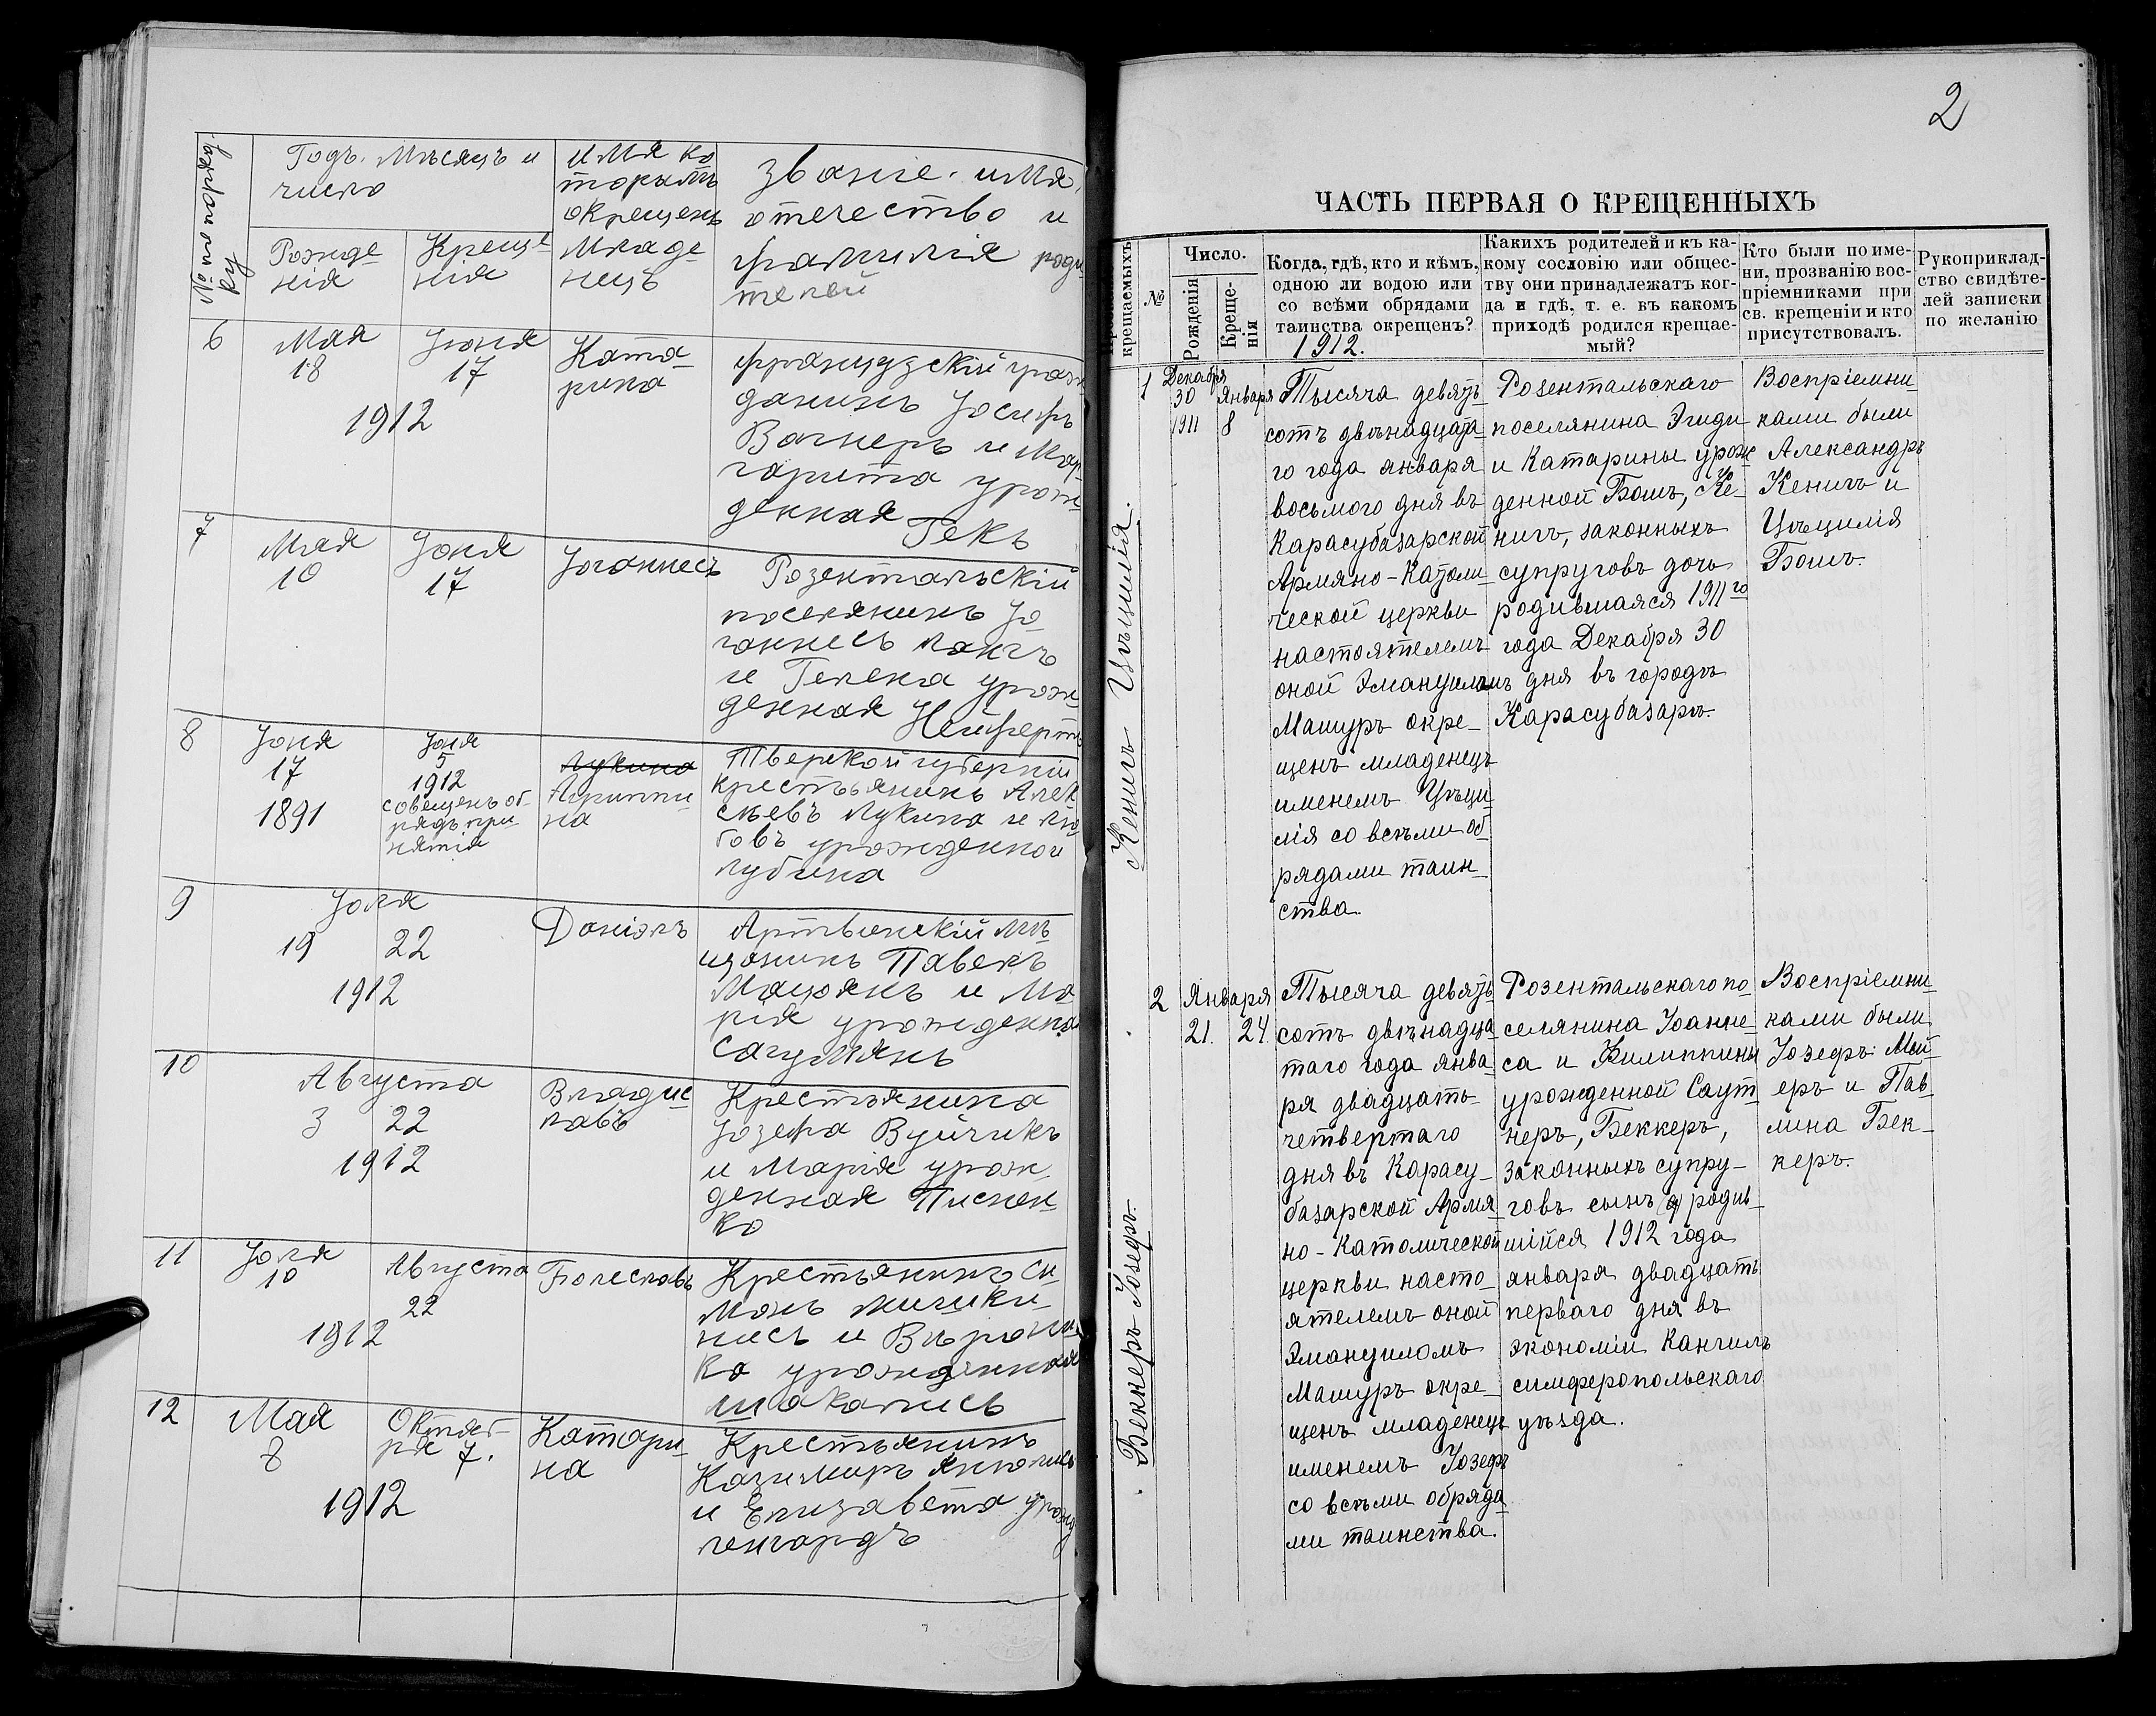 № по порядку
Годъ. Мѣсяцъ и
число
Рожде-
нія
Креще-
нія
имя ко
торымъ
окрещенъ
Младе
нецъ
Званіе. имя,
отечество и
фамилія роди-
телей
6
Мая
18
Іюня
17
1912
Ката-
рина
французскій граж-
данинъ Іосифъ
Вагнеръ и Мар-
гарита урож-
денная
Гекъ
7
Мая
10
Іюня
17
Іоганнесъ
Розентальскій
поселянинъ Іо
ганнесъ Лангъ
и Гелена урож-
денная Нейфертъ
8
Іюня
17
1891
Іюня
5
1912
совещенъ об-
рядъ при-
нятія
Лукина
Агриппи-
на
Тверской губерніи
крестьянинъ Алек
сѣевъ Лукина и Лю
бовь урожденной
Лубина
9
Іюля
19 22
1912
Даніэлъ
Артвинскій мѣ-
щанинъ Павелъ
Мацоянъ и Ма
рія урожденная
Сагумянъ
10
Августа
3 22
1912
Владис-
лавъ
Крестьянина
Іозефа Вуйчикъ
и Марія урож
денная Писнен-
ко
11
Іюля
10
Августа
22
1912
Болеславъ
Крестьянинъ Си
монъ
и Вѣрони-
ка урожденная
12
Мая
8
Октяб-
ря 7.
1912
Катари-
на
Крестьянинъ
Казимиръ
и Елизавета урожд
ленгардъ
2
ЧАСТЬ ПЕРВАЯ О КРЕЩЕННЫХЪ
крещаемыхъ
№
Число.
Рожденія
Креще-
нія
Когда, гдѣ, кто и кѣмъ,
одною ли водою или
со всѣми обрядами
таинства окрещенъ?
1912.
Какихъ родителей и къ ка-
кому сословію или общес-
тву они принадлежатъ ког-
да и гдѣ, т. е. въ какомъ
приходѣ родился крещае-
мый?
Кто были по име-
ни, прозванію вос-
пріемниками при
св. крещеніи и кто
присутствовалъ.
Рукоприклад-
ство свидѣте-
лей записки
по желанію
Кенигъ Цѣцилія.
1
Декабря
30
1911
Января
8
Тысяча девять-
сотъ двѣнадцата-
го года января
восьмого дня въ
Карасубазарской
Армяно-Католи-
ческой церкви
настоятелемъ
оной Эмануиломъ
Машуръ окре-
щенъ младенецъ
именемъ Цѣци-
лія со всѣми об-
рядами таин-
ства.
Розентальскаго
поселянина Эгиди
и Катарины урож
денной Бошъ, Ке-
нигъ, законныхъ
супруговъ дочь
родившаяся 1911го
года Декабря 30
дня въ городѣ
Карасубазарѣ.
Воспріемни-
ками были
Александръ
Кенигъ и
Цѣцилія
Бошъ.
Беккеръ Іозефъ.
2
Января
21. 24.
Тысяча девять-
сотъ двѣнадца
таго года янва-
ря двадцать-
четвертаго
дня въ Карасу-
базарской Армя-
но-Католической
церкви насто-
ятелемъ оной
Эмануиломъ
Машуръ окре-
щенъ младенецъ
именемъ Іозефъ
со всѣми обряда-
ми таинства.
Розентальскаго по-
селянина Іоанне-
са и Филиппины
урожденной Саут-
неръ, Беккеръ,
законныхъ супру-
говъ сынъ родив-
шійся 1912 года
января двадцать
перваго дня въ
экономіи Кангилъ
симферопольскаго
уѣзда.
Воспріемни-
ками были
Іозефъ Мей-
еръ и Пав-
лина Бек-
керъ.